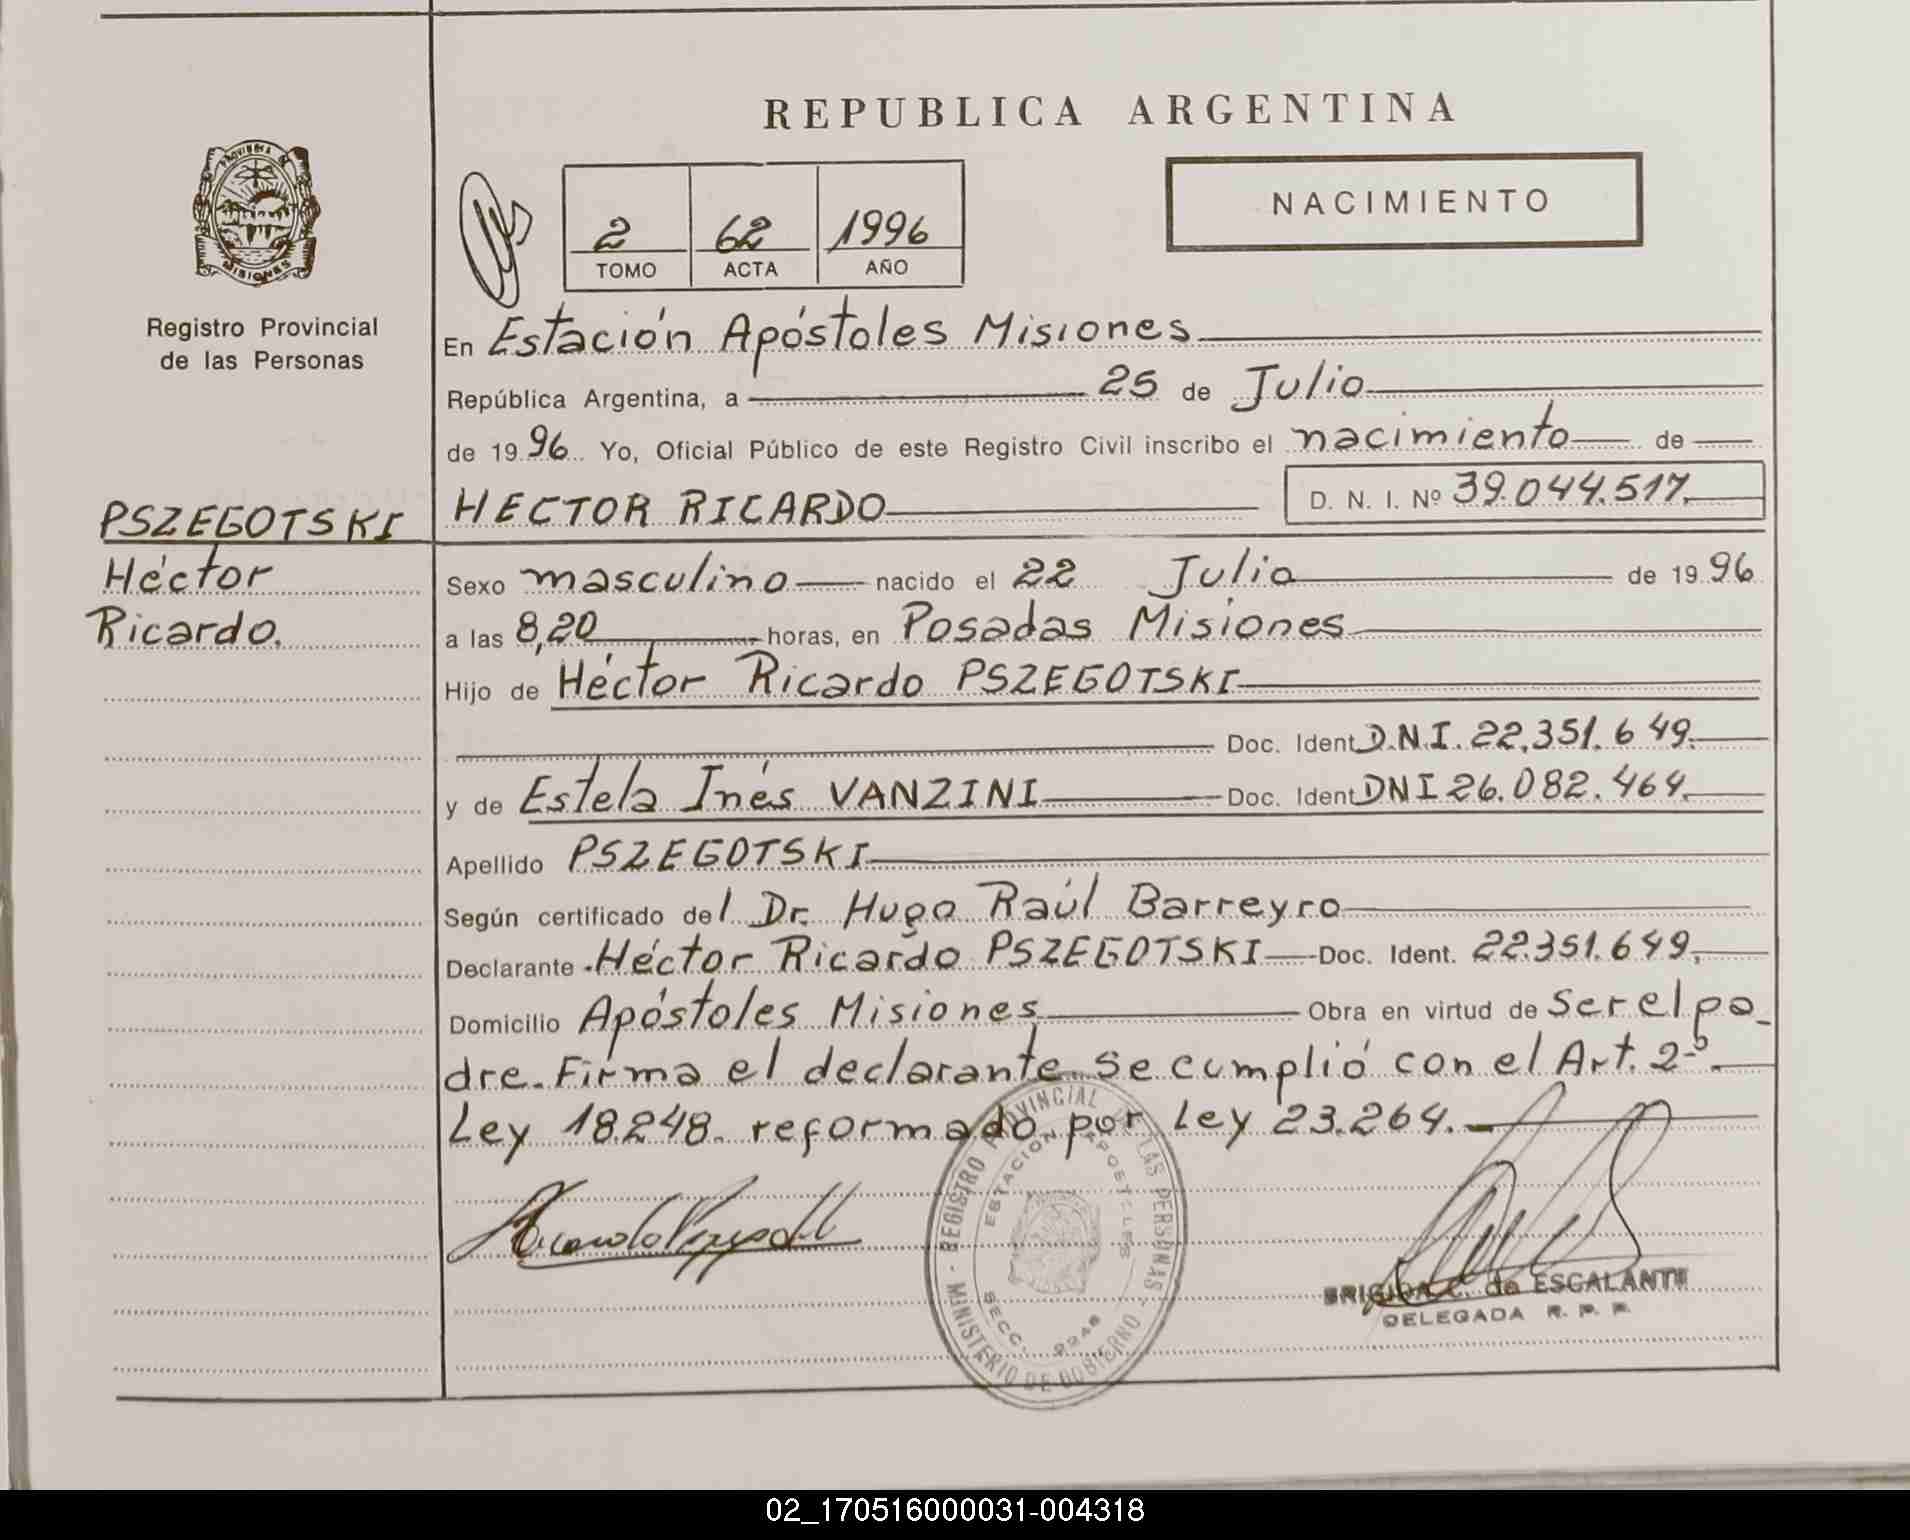 REPUBLICA ARGENTINA
PROVINCIA DE
MISIONES
Registro Provincial
de las Personas
2 62 1996
TOMO ACTA AÑO
NACIMIENTO
En Estación Apóstoles Misiones
República Argentina, a 25 de Julio
de 1996 Yo, Oficial Público de este Registro Civil inscribo el nacimiento de
PSZEGOTSKI
Héctor
Ricardo.
HECTOR RICARDO D. N. I. Nº 39.044.517.
Sexo masculino nacido el 22 Julio de 1996
a las 8,20 horas, en Posadas Misiones
Hijo de Héctor Ricardo PSZEGOTSKI
Doc. Ident D.N.I. 22.351.649.
y de Estela Inés VANZINI Doc. Ident DNI 26.082.464.
Apellido PSZEGOTSKI
Según certificado del Dr. Hugo Raúl Barreyro
Declarante Héctor Ricardo PSZEGOTSKI Doc. Ident. 22.351.649.
Domicilio Apóstoles Misiones Obra en virtud de ser el pa_
dre. Firma el declarante. Se cumplió con el Art. 2º.
Ley 18.248. reformado por Ley 23.264.
- REGISTRO PROVINCIAL DE LAS PERSONAS - MINISTERIO DE GOBIERNO
ESTACION APOSTOLES
SECC.
BRIGIDA C. de ESCALANTE
DELEGADA R. P. P.
02_170516000031-004318